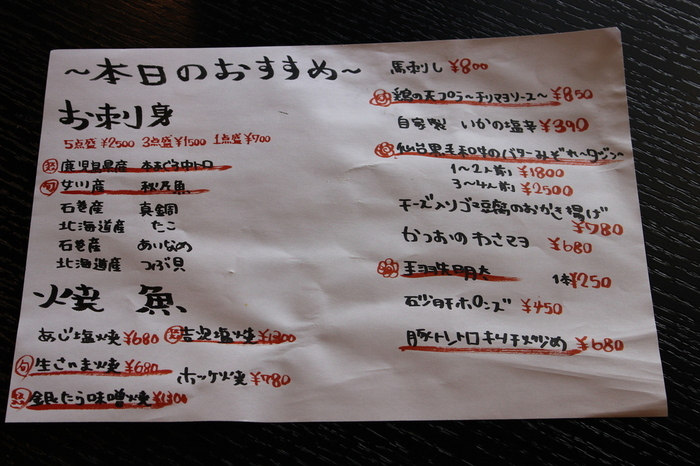 ~本日のおすすめ~
お刺身
5点盛 ¥2500 3点盛 ¥1500 1点盛 ¥700
鹿児島県産 本まぐろ中トロ
旬 女川産 秋刀魚
石巻産 真鯛
北海道産 たこ
石巻産 あいなめ
北海道産 つぶ貝
焼魚
あじ塩焼 ¥680
吉次塩焼 ¥1300
旬 生さんま焼 ¥680
ホッケ焼 ¥780
銀たら味噌焼 ¥1300
馬刺し ¥800
鶏の天プラ~チリマヨソース~ ¥850
自家製 いかの塩辛 ¥390
仙台黒毛和牛のバターみぞれ
1~2人前 ¥1800
3~4人前 ¥2500
チーズ入りゴマ豆腐のおかき揚げ
¥780
かつおのわさマヨ ¥680
明太 1本 ¥250
ポンズ ¥450
豚トントロキムチ炒め ¥680